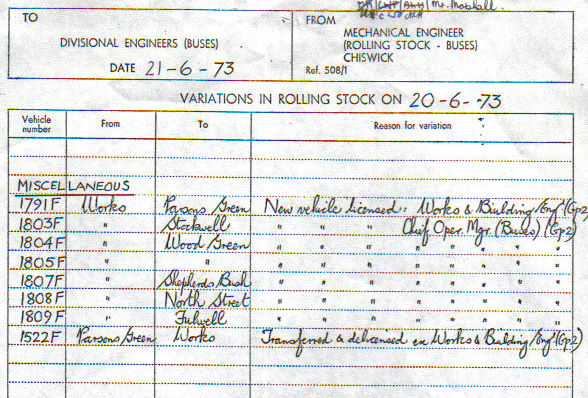 Mr. Mostall
TO
FROM
DIVISIONAL ENGINEERS (BUSES)
MECHANICAL ENGINEER
(ROLLING STOCK - BUSES)
CHISWICK
DATE 21-6-73
Ref. 508/1
VARIATIONS IN ROLLING STOCK ON 20-6-73
Vehicle number From To Reason for variation
MISCELLANEOUS
1791F Works Parsons Green New vehicle licensed. Works & Building Eng' (Gp2)
1803F " Stockwell " " " Chief Oper. Mgr. (Buses) (Gp2)
1804F " Wood Green " " " " " " " "
1805F " " " " " " " " " "
1807F " Shepherds Bush " " " " " " " "
1808F " North Street " " " " " " " "
1809F " Fulwell " " " " " " " "
1522F Parsons Green Works Transferred & delicensed ex Works & Building Eng' (Gp2)